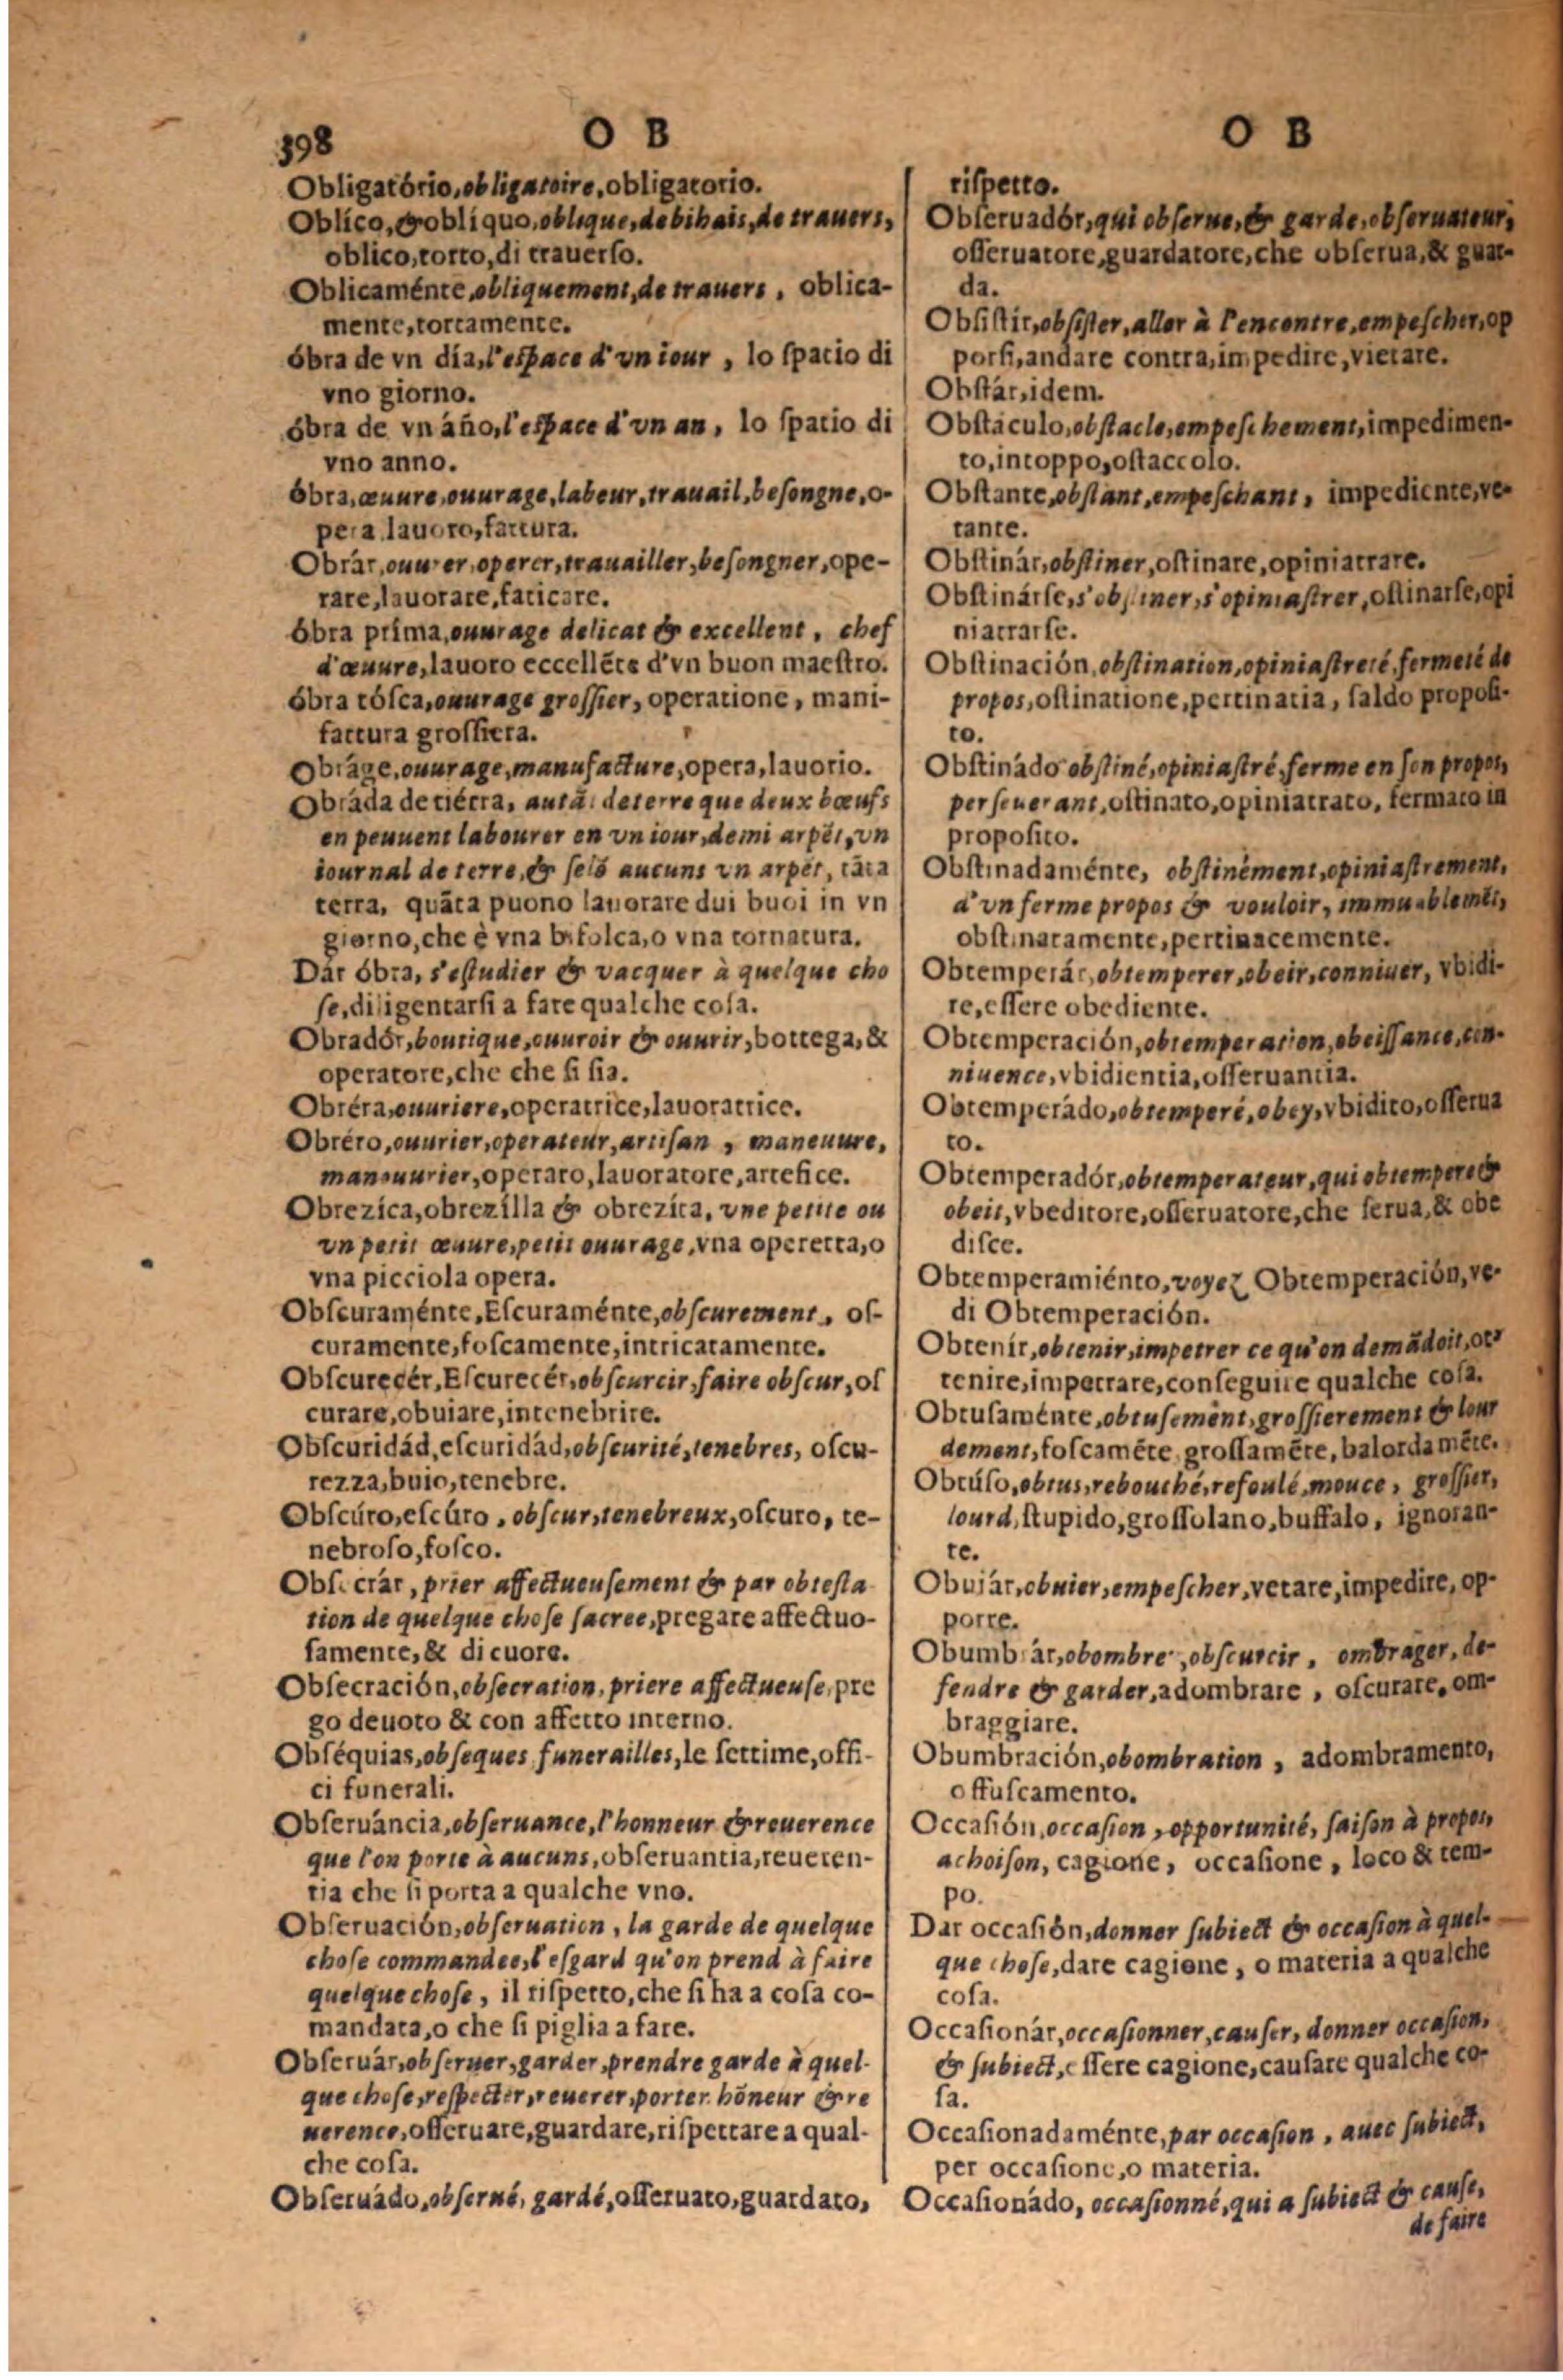 398
O B
Obligatório, obligatoire, obligatorio.
Oblíco, & oblíquo, oblique, de bihais, de trauers,
oblico, torto, di trauerſo.
Oblicaménte, obliquement, de trauers, oblica-
mente, tortamente.
óbra de vn día, l'eſpace d'vn iour, lo ſpatio di
vno giorno.
óbra de vn áño, l'eſpace d'vn an, lo ſpatio di
vno anno.
óbra, œuure, ouurage, labeur, trauail, beſongne, o-
pera lauoro, fattura.
Obrár, ouurer, operer, trauailler, beſongner, ope-
rare, lauorare, faticare.
óbra príma, ouurage delicat & excellent, chef
d'œuure, lauoro eccellẽte d'vn buon maeſtro.
óbra tóſca, ouurage groſſier, operatione, mani-
fattura groſſiera.
Obráge, ouurage, manufacture, opera, lauorio.
Obráda de tiérra, autã: de terre que deux bœufs
en peuuent labourer en vn iour, demi arpẽt, vn
iournal de terre, & ſelõ aucuns vn arpẽt, tãta
terra, quãta puono lauorare dui buoi in vn
giorno, che è vna bifolca, o vna tornatura.
Dár óbra, s'eſtudier & vacquer à quelque cho
ſe, diligentarſi a fare qualche coſa.
Obradór, boutique, ouuroir & ouurir, bottega, &
operatore, che che ſi ſia.
Obréra, ouuriere, operatrice, lauoratrice.
Obréro, ouurier, operateur, artiſan, maneuure,
manouurier, operaro, lauoratore, artefice.
Obrezíca, obrezílla & obrezíta, vne petite ou
vn petit œuure, petit ouurage, vna operetta, o
vna picciola opera.
Obſcuraménte, Eſcuraménte, obſcurement, oſ-
curamente, foſcamente, intricatamente.
Obſcurecér, Eſcurecér, obſcurcir, faire obſcur, oſ
curare, obuiare, intenebrire.
Obſcuridád, eſcuridád, obſcurité, tenebres, oſcu-
rezza, buio, tenebre.
Obſcúro, eſcúro, obſcur, tenebreux, oſcuro, te-
nebroſo, foſco.
Obſecrár, prier affectueuſement & par obteſta
tion de quelque choſe ſacree, pregare affectuo-
ſamente, & di cuore.
Obſecración, obſecration, priere affectueuſe, pre
go deuoto & con affetto interno.
Obſéquias, obſeques funerailles, le ſettime, offi-
ci funerali.
Obſeruáncia, obſeruance, l'honneur & reuerence
que l'on porte à aucuns, obſeruantia, reueren-
tia che ſi porta a qualche vno.
Obſeruación, obſeruation, la garde de quelque
choſe commandee, l'eſgard qu'on prend à faire
quelque choſe, il riſpetto, che ſi ha a coſa co-
mandata, o che ſi piglia a fare.
Obſeruár, obſeruer, garder, prendre garde à quel-
que choſe, reſpecter, reuerer, porter hõneur & re
uerence, oſſeruare, guardare, riſpettare a qual-
che coſa.
Obſeruádo, obſerué, gardé, oſſeruato, guardato,
O B
riſpetto.
Obſeruadór, qui obſerue, & garde, obſeruateur,
oſſeruatore, guardatore, che obſerua, & guar-
da.
Obſiſtir, obſiſter, aller à l'encontre, empeſcher, op
porſi, andare contra, impedire, vietare.
Obſtár, idem.
Obſtáculo, obſtacle, empeſchement, impedimen-
to, intoppo, oſtaccolo.
Obſtante, obſtant, empeſchant, impediente, ve-
tante.
Obſtinár, obſtiner, oſtinare, opiniatrare.
Obſtinárſe, s'obſtiner, s'opiniaſtrer, oſtinarſe, opi
niatrarſe.
Obſtinación, obſtination, opiniaſtreté, fermeté de
propos, oſtinatione, pertinatia, ſaldo propoſi-
to.
Obſtinádo obſtiné, opiniaſtré, ferme en ſon propos,
perſeuerant, oſtinato, opiniatrato, fermato in
propoſito.
Obſtinadaménte, obſtinément, opiniaſtrement,
d'vn ferme propos & vouloir, immuablemẽt,
obſtinatamente, pertinacemente.
Obtemperár, obtemperer, obeir, conniuer, vbidi-
re, eſſere obediente.
Obtemperación, obtemperation, obeiſſance, con-
niuence, vbidientia, oſſeruantia.
Obtemperádo, obtemperé, obey, vbidito, oſſerua
to.
Obtemperadór, obtemperateur, qui obtempere &
obeit, vbeditore, oſſeruatore, che ſerua, & obe
diſce.
Obtemperamiénto, voyez Obtemperación, ve-
di Obtemperación.
Obtenír, obtenir, impetrer ce qu'on demãdoit, ot-
tenire, impetrare, conſeguire qualche coſa.
Obtuſaménte, obtuſement, groſſierement & lour
dement, foſcamẽte, groſſamẽte, balordamẽte.
Obtúſo, obtus, rebouché, refoulé, mouce, groſſier,
lourd, ſtupido, groſſolano, buffalo, ignoran-
te.
Obuiár, obuier, empeſcher, vetare, impedire, op-
porre.
Obumbrár, obombrer, obſcurcir, ombrager, de-
fendre & garder, adombrare, oſcurare, om-
braggiare.
Obumbración, obombration, adombramento,
offuſcamento.
Occaſión, occaſion, opportunité, ſaiſon à propos,
achoiſon, cagione, occaſione, loco & tem-
po.
Dar occaſión, donner ſubiect & occaſion à quel-
que choſe, dare cagione, o materia a qualche
coſa.
Occaſionár, occaſionner, cauſer, donner occaſion,
& ſubiect, eſſere cagione, cauſare qualche co-
ſa.
Occaſionadaménte, par occaſion, auec ſubiect,
per occaſione, o materia.
Occaſionádo, occaſionné, qui a ſubiect & cauſe,
de faire